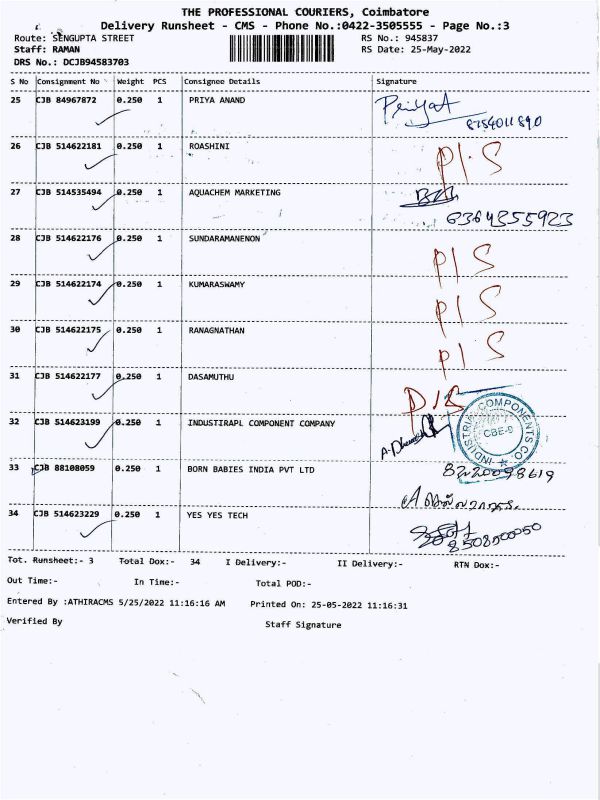 THE PROFESSIONAL COURIERS, Coimbatore
Delivery Runsheet - CMS - Phone No.:0422-3505555 - Page No.:3
Route: SENGUPTA STREET RS No.: 945837
Staff: RAMAN RS Date: 25-May-2022
DRS No.: DCJB94583703
S No Consignment No Weight PCS Consignee Details Signature
25 CJB 84967872 0.250 1 PRIYA ANAND PriyaA
8754011890
26 CJB 514622181 0.250 1 ROASHINI P/S
27 CJB 514535494 0.250 1 AQUACHEM MARKETING
6364355923
28 CJB 514622176 0.250 1 SUNDARAMANENON P/S
29 CJB 514622174 0.250 1 KUMARASWAMY P/S
30 CJB 514622175 0.250 1 RANAGNATHAN P/S
31 CJB 514622177 0.250 1 DASAMUTHU P/S
32 CJB 514623199 0.250 1 INDUSTIRAPL COMPONENT COMPANY
INDUSTRIAL COMPONENTS CO.
CBE-9
33 CJB 88108059 0.250 1 BORN BABIES INDIA PVT LTD 8220098619
34 CJB 514623229 0.250 1 YES YES TECH
8508500050
Tot. Runsheet:- 3 Total Dox:- 34 I Delivery:- II Delivery:- RTN Dox:-
Out Time:- In Time:- Total POD:-
Entered By :ATHIRACMS 5/25/2022 11:16:16 AM Printed On: 25-05-2022 11:16:31
Verified By Staff Signature